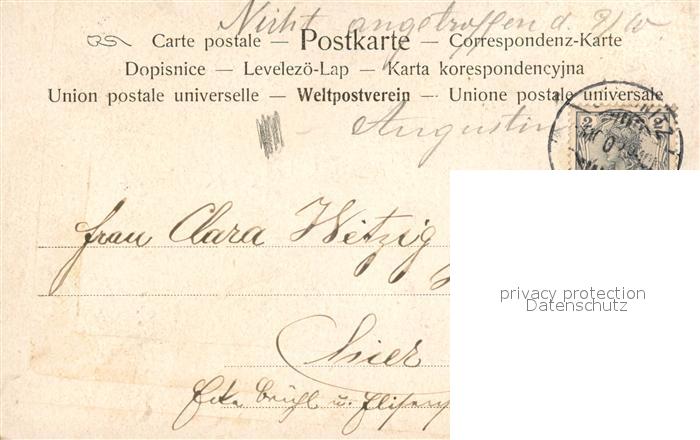 Nicht angetroffen d. 9/10
Carte postale — Postkarte — Correspondenz-Karte
Dopisnice — Levelező-Lap — Karta korespondencyjna
Union postale universelle — Weltpostverein — Unione postale universale
Augustin
2 2
Frau Clara Wetzig
hier
Ecke Brühl u.
privacy protection
Datenschutz